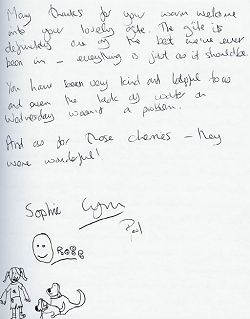 Many thanks for your warm welcome
into your lovely gite. The gite is
definitely one of the best we've ever
been in – everything is just as it should be.
You have been very kind and helpful to us
and even the lack of water on
Wednesday wasn't a problem.
And as for those cherries – they
were wonderful!
Sophie Lynn
Paul